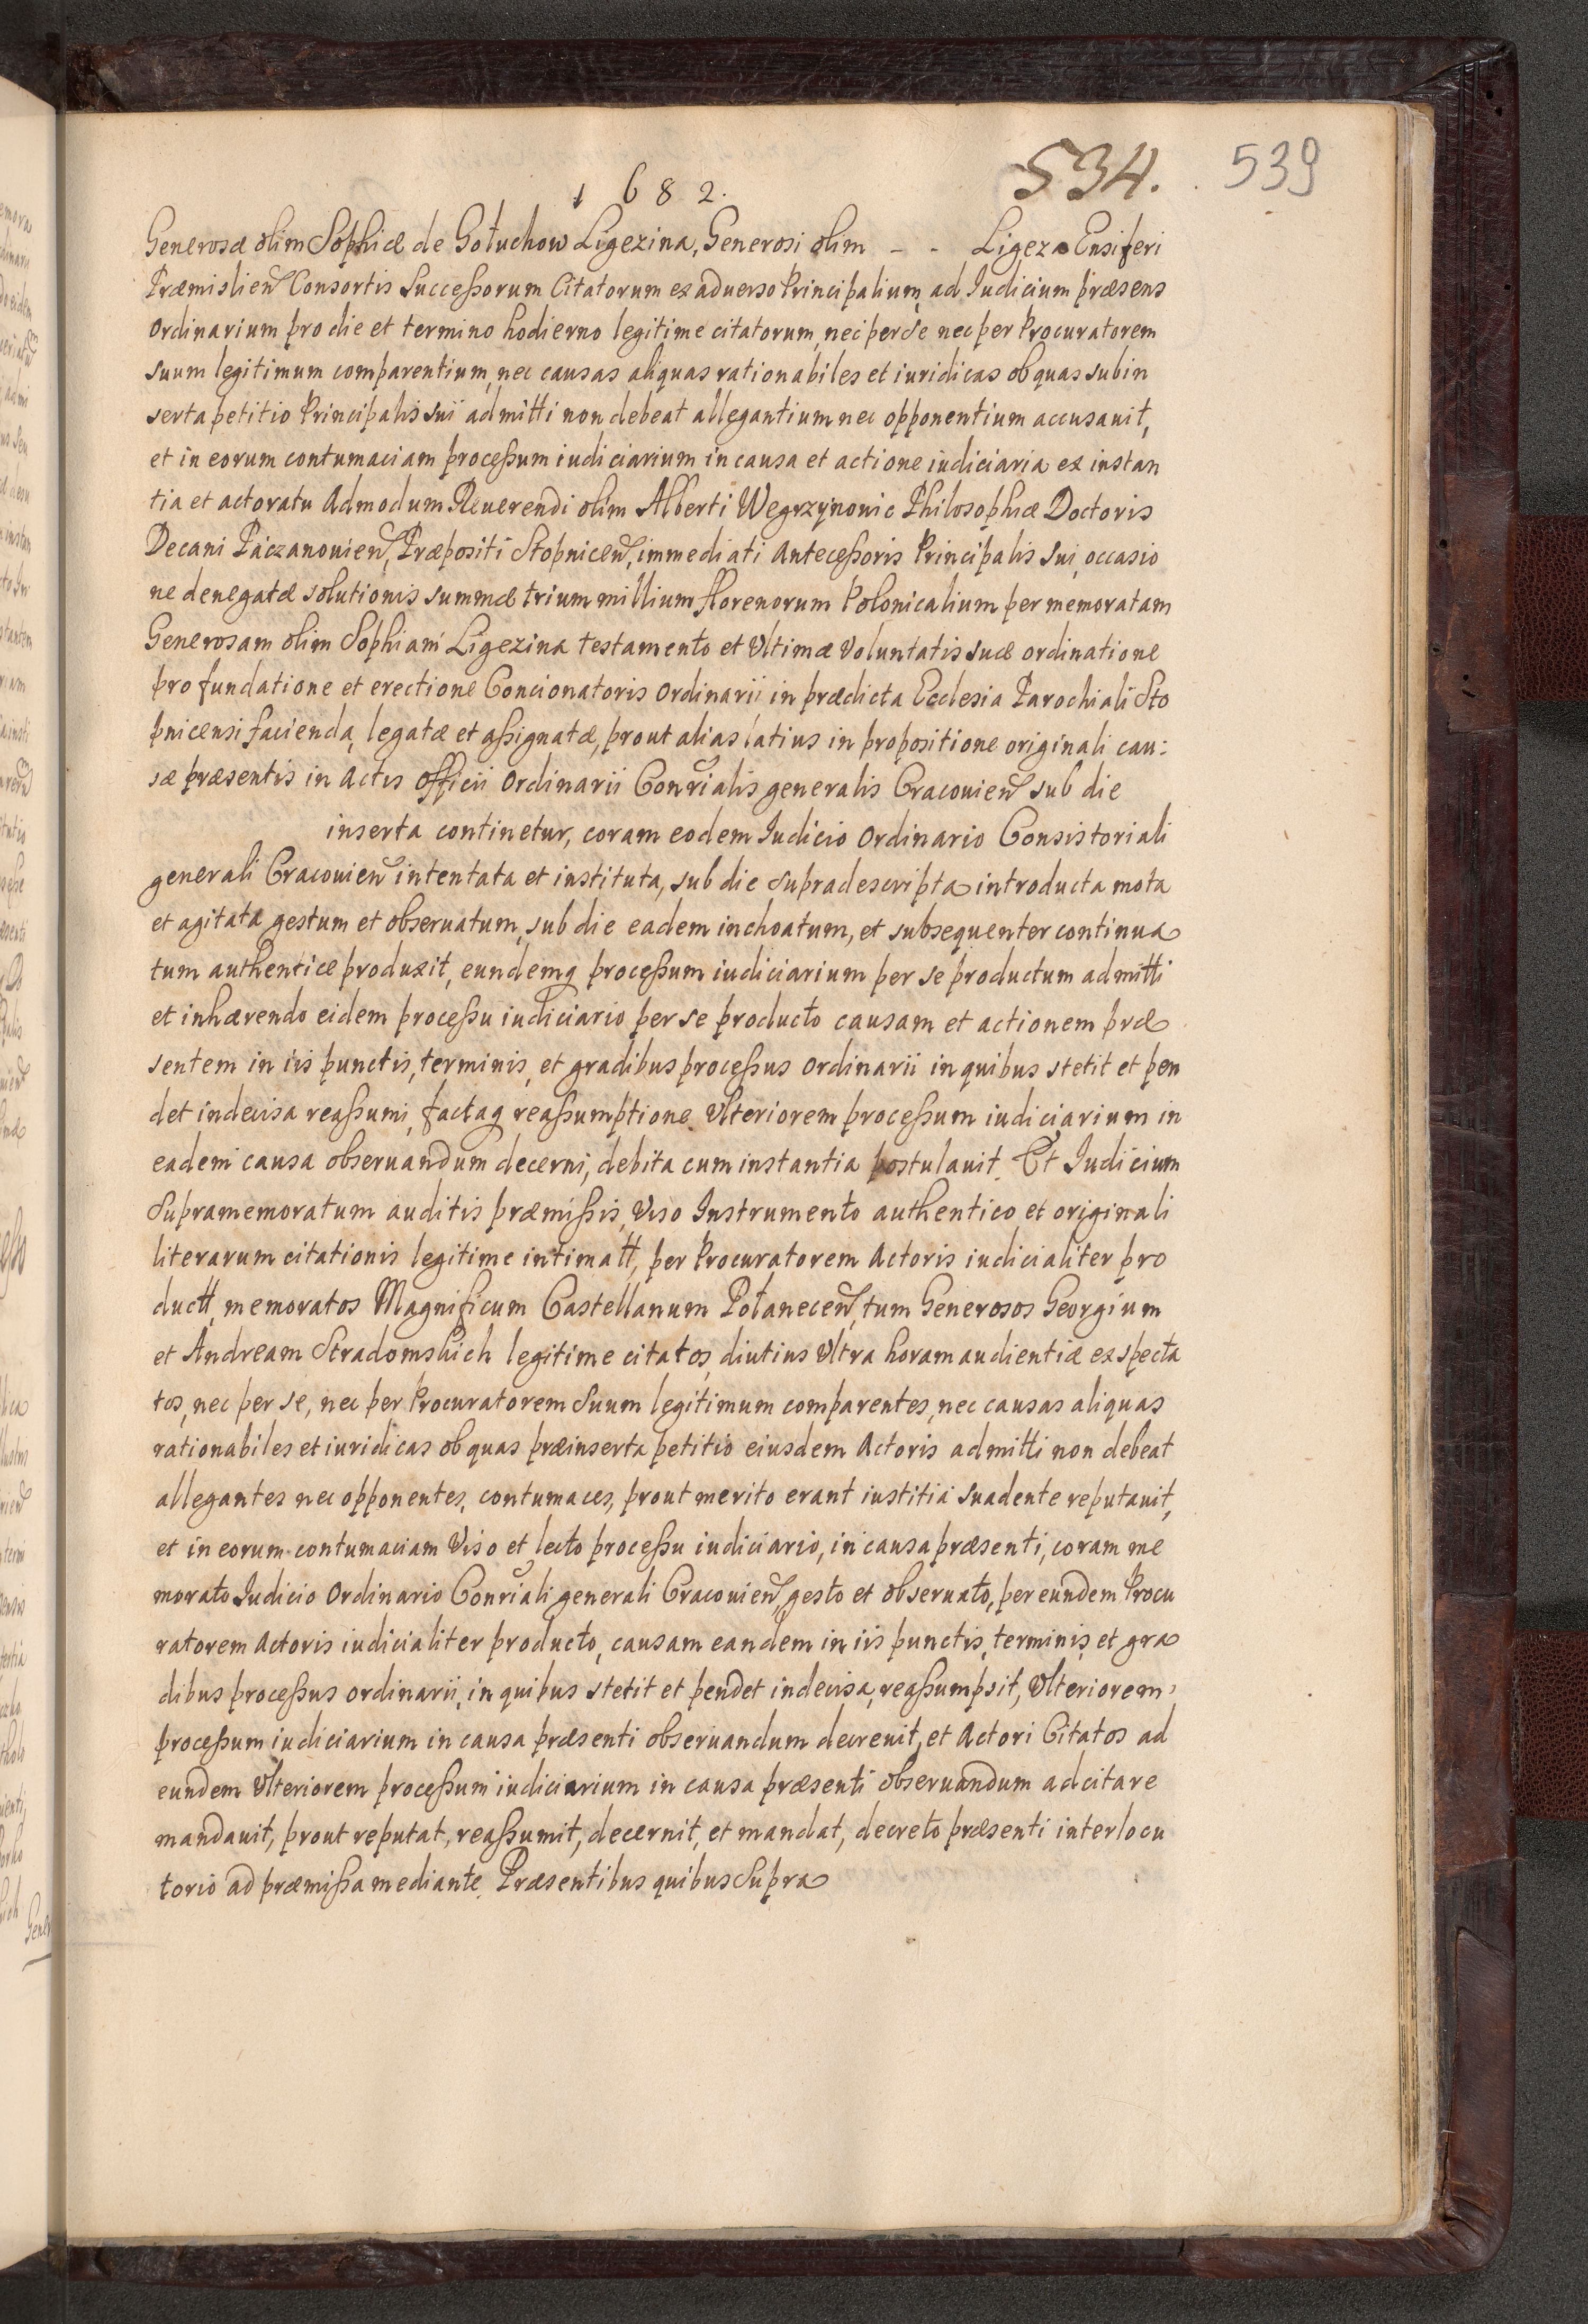 1682.
534.
539
Generosæ olim Sophiæ de Gołuchow Ligezina, Generosi olim - - Ligeza Ensiferi
Præmislien Consortis Successorum Citatorum ex aduerso Principalium, ad Iudicium præsens
Ordinarium pro die et termino hodierno legitime citatorum, nec per se nec per Procuratorem
suum legitimum comparentium, nec causas aliquas rationabiles et iuridicas ob quas subin
serta petitio Principalis sui admitti non debeat allegantium nec opponentium accusauit,
et in eorum contumaciam processum iudiciarium in causa et actione iudiciaria ex instan
tia et actoratu Admodum Reuerendi olim Alberti Wegrzynowic Philosophiæ Doctoris
Decani Paczanouien, Præpositi Stopnicen, immediati Antecessoris Principalis sui, occasio
ne denegatæ solutionis summæ trium millium florenorum Polonicalium per memoratam
Generosam olim Sophiam Ligezina testamento et Vltimæ Voluntatis suæ ordinatione
pro fundatione et erectione Concionatoris Ordinarii in prædicta Ecclesia Parochiali Sto
pnicensi facienda, legatæ et assignatæ, prout alias latius in propositione originali cau:
sæ præsentis in Actis Officii Ordinarii Conrialis generalis Cracouien sub die
inserta continetur, coram eodem Iudicio Ordinario Consistoriali
generali Cracouien intentata et instituta, sub die supradescripta introducta mota
et agitata gestum et obseruatum, sub die eadem inchoatum, et subsequenter continua
tum authentice produxit, eundemq processum iudiciarium per se productum admitti
et inhærendo eidem processu iudiciario per se producto causam et actionem præ
sentem in iis punctis, terminis, et gradibus processus Ordinarii in quibus stetit et pen
det indecisa reassumi, factaq reassumptione Vlteriorem processum iudiciarium in
eadem causa obseruandum decerni, debita cum instantia postulauit. Et Iudicium
Supramemoratum auditis præmissis, Viso Instrumento authentico et originali
literarum citationis legitime intimatt, per Procuratorem Actoris iudicialiter pro
ductt, memoratos Magnificum Castellanum Połanecen, tum Generosos Georgium
et Andream Stradomskich legitime citatos, diutius Vltra horam audientiæ exspecta
tos, nec per se, nec per Procuratorem suum legitimum comparentes, nec causas aliquas
rationabiles et iuridicas ob quas præinserta petitio eiusdem Actoris admitti non debeat
allegantes nec opponentes, contumaces, prout merito erant iustitia suadente reputauit,
et in eorum contumaciam Viso et lecto processu iudiciario, in causa præsenti, coram me
morato Iudicio Ordinario Conriali generali Cracouien, gesto et obseruato, per eundem Procu
ratorem Actoris iudicialiter producto, causam eandem in iis punctis, terminis, et gra
dibus processus ordinarii, in quibus stetit et pendet indecisa, reassumpsit, Vlteriorem
processum iudiciarium in causa præsenti obseruandum decreuit, et Actori Citatos ad
eundem Vlteriorem processum iudiciarium in causa præsenti obseruandum adcitare
mandauit, prout reputat, reassumit, decernit, et mandat, decreto præsenti interlocu
torio ad præmissa mediante. Præsentibus quibus Supra